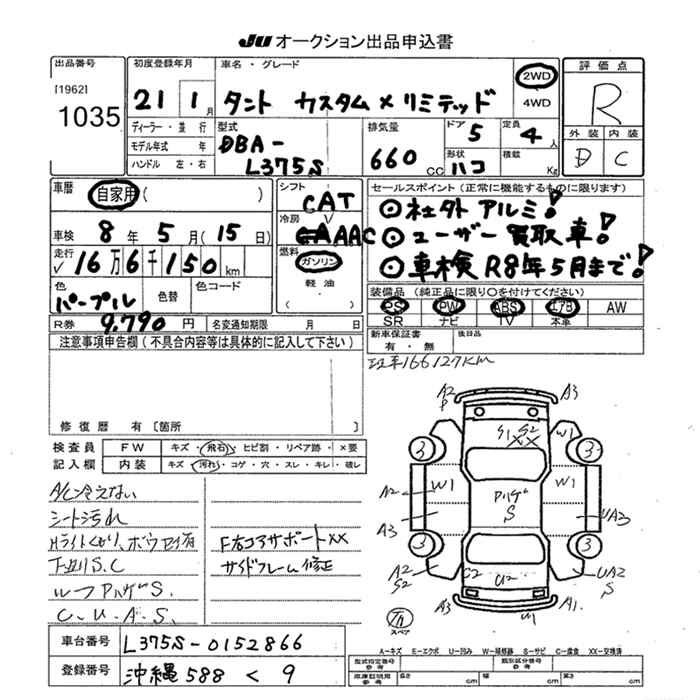 JU オークション出品申込書
出品番号
[1962]
1035
初度登録年月
21 1月
車名・グレード
タント カスタム X リミテッド
2WD
4WD
評価点
R
外装 内装
D C
ディーラー・並行
モデル年式 年
ハンドル 左・右
型式
DBA-
L375S
排気量
660 CC
ドア 5
形状 ハコ
定員 4人
積載 Kg
車歴 自家用( )
車検 8年 5月(15日)
走行 √16万6千150km
色 パープル
色替
色コード
R券 9,790円
名変通知期限 月 日
シフト
CAT
冷房 V
AAC
燃料
ガソリン
軽油
( )
セールスポイント(正常に機能するものに限ります)
◎社外アルミ!
◎ユーザー買取車!
◎車検R8年5月まで!
装備品(純正品に限り〇を付けてください)
PS PW ABS エアB AW
SR ナビ TV 本革
新車保証書
有・無
後日品
注意事項申告欄(不具合内容等は具体的に記入して下さい)
修復歴 有〔箇所 〕
現車166127KM
検査員
記入欄
FW キズ・飛石・ヒビ割・リペア跡・×要
内装 キズ・汚れ・コゲ・穴・スレ・キレ・破レ
A/C冷えない
シート汚れ
Hライトくもり、ボウセイ有
下廻りS.C
ルーフアルハゲS.
C.U.A.S.
F右コアサポートXX
サイドフレーム修正
A2
P
A3
S1 S2
XX
W1
3 3
A2 W1 W1
クリハゲ
S
A3 UA3
3 3
A2
S2
C2 U2
UA2
S
A3 W1 A1
スペア
A=キズ E=エクボ U=凹み W=補修跡 S=サビ C=腐食 XX=交換済
車台番号 L375S-0152866
登録番号 沖縄588 く 9
型式指定番号
参考
類別区分番号
参考
車庫証明用
参考
長さ cm 幅 cm 高さ cm